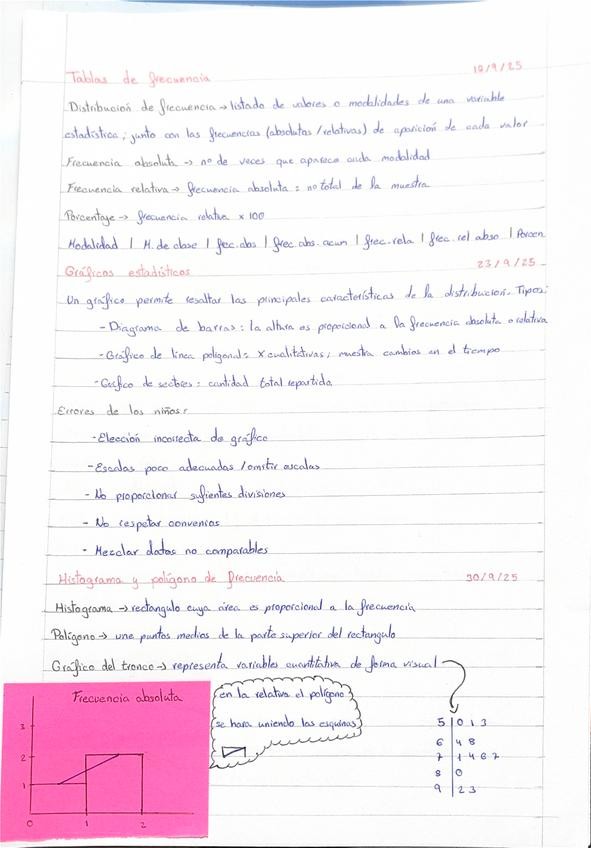 Tablas de frecuencia 18/9/25
Distribución de frecuencia → listado de valores o modalidades de una variable
estadística, junto con las frecuencias (absolutas/relativas) de aparición de cada valor
Frecuencia absoluta → nº de veces que aparece cada modalidad
Frecuencia relativa → frecuencia absoluta : nº total de la muestra
Porcentaje → frecuencia relativa x 100
Modalidad | M. de clase | frec. abs | frec abs. acum | frec. rela | frec. rel abso | Porcen
Gráficos estadísticos 23/9/25
Un gráfico permite resaltar las principales características de la distribución. Tipos:
- Diagrama de barras: la altura es proporcional a la frecuencia absoluta o relativa
- Gráfico de línea poligonal: x cualitativas; muestra cambios en el tiempo
- Gráfico de sectores: cantidad total repartida
Errores de los niños:
- Elección incorrecta de gráfico
- Escalas poco adecuadas / omitir escalas
- No proporcionar sufientes divisiones
- No respetar convenios
- Mezclar datos no comparables
Histograma y polígono de frecuencia 30/9/25
Histograma → rectangulo cuya área es proporcional a la frecuencia
Polígono → une puntos medios de la parte superior del rectangulo
Gráfico del tronco → representa variables cuantitativa de forma visual
Frecuencia absoluta
3
2
1
0 1 2
en la relativa el polígono
se hara uniendo las esquinas
5 | 0 1 3
6 | 4 8
7 | 1 4 6 7
8 | 0
9 | 2 3